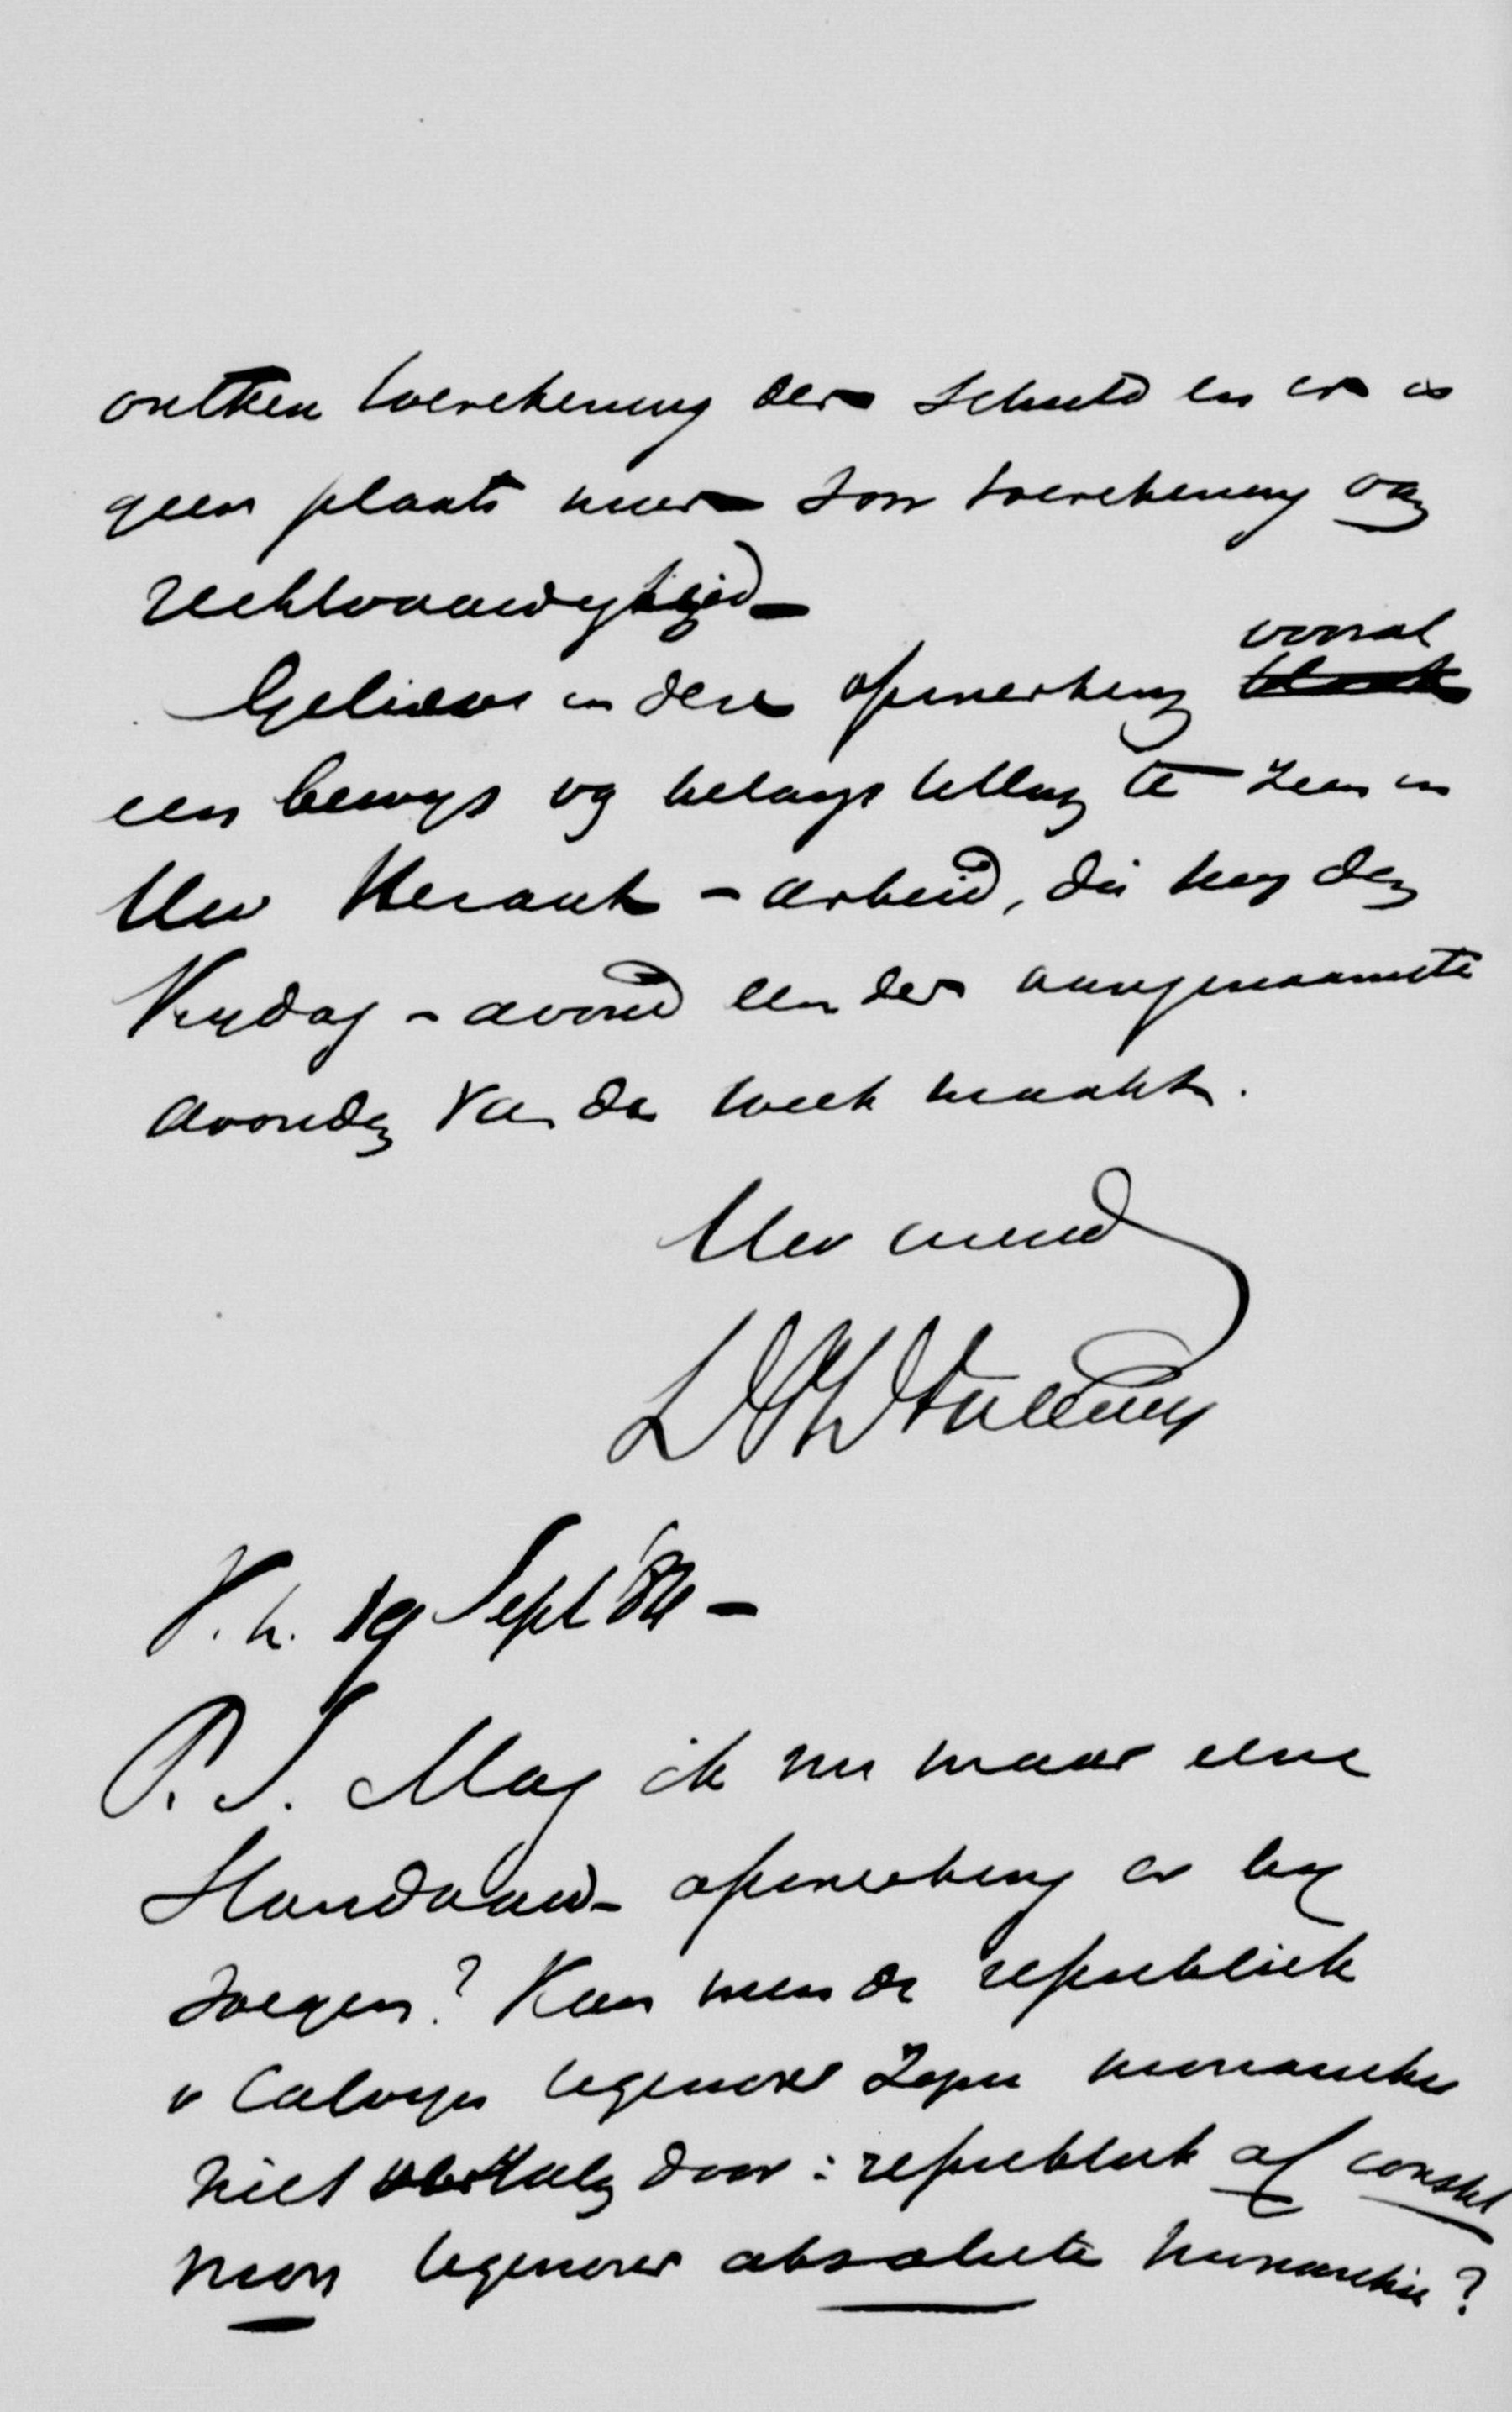 ontken toerekening der schuld en er is
geen plaats meer voor toerekening van
rechtvaardigheid –
Gelieve in deze opmerking vooral
een bewijs van belangstelling te zien in
Uw Heraut - arbeid, die my den
Vrydag - avond een der aangenaamste
avonden van de week maakt.
Uw vriend
V. h. 19 Sept '84 –
P. S. Mag ik nu maar eene
Standaard- opmerking er by
voegen? Kan men de republiek
v Calvyn tegenover Zyne monarchie
niet door : republiek of const
mon tegenover absolute monarchie?